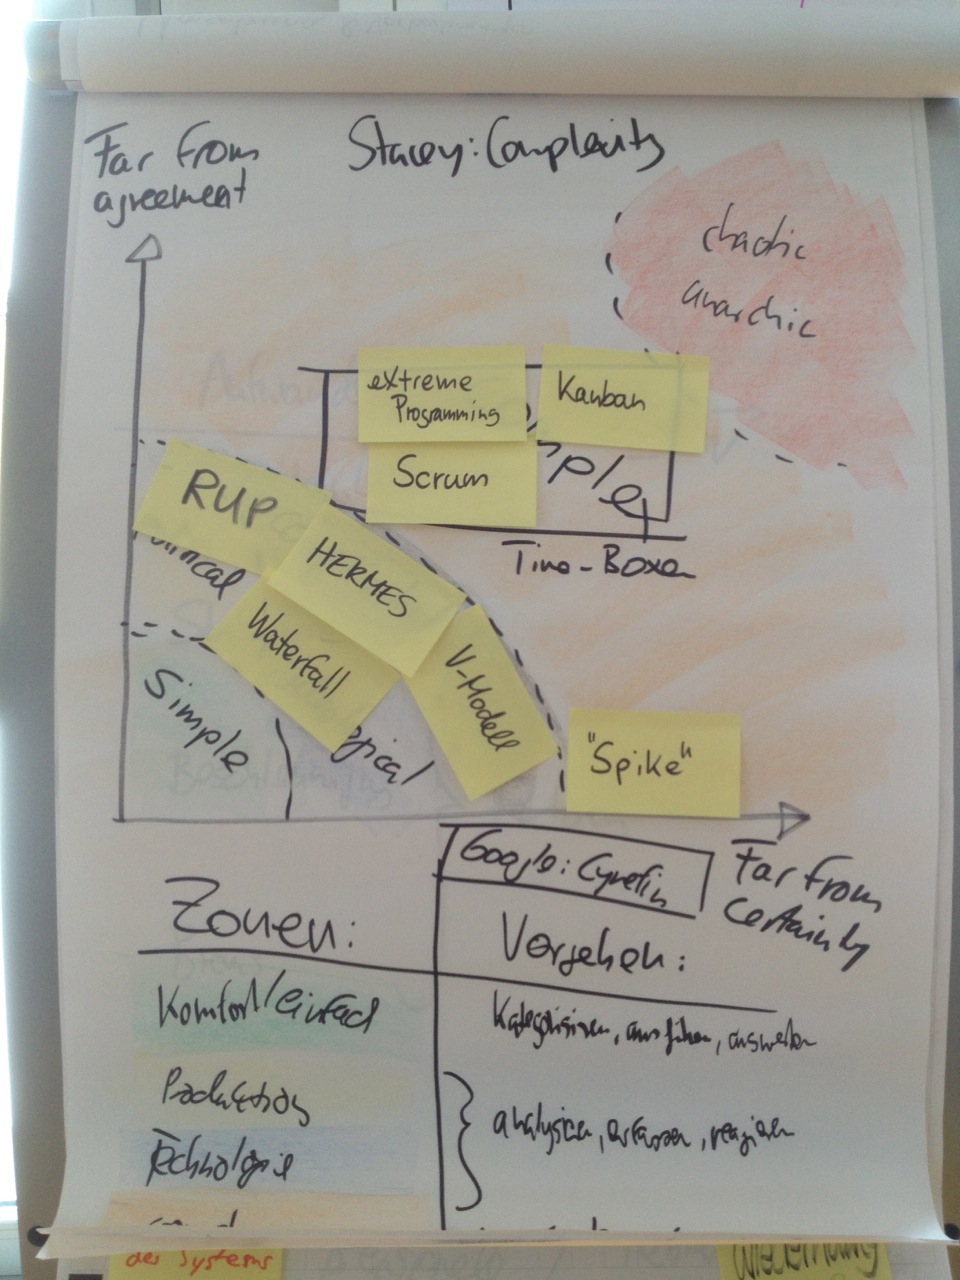 Far from
agreement
Stacey: Complexity
chaotic
anarchic
extreme
Programming
Kanban
Scrum
Time-Boxen
RUP
HERMES
Waterfall
V-Modell
"Spike"
Simple
Google: Cynefin
Far from
certainty
Zonen:
Vorgehen:
Komfort/einfach
Kategorisieren, ausführen, auswerten
Produktion
analysieren, erfassen, reagieren
Technologie
des Systems